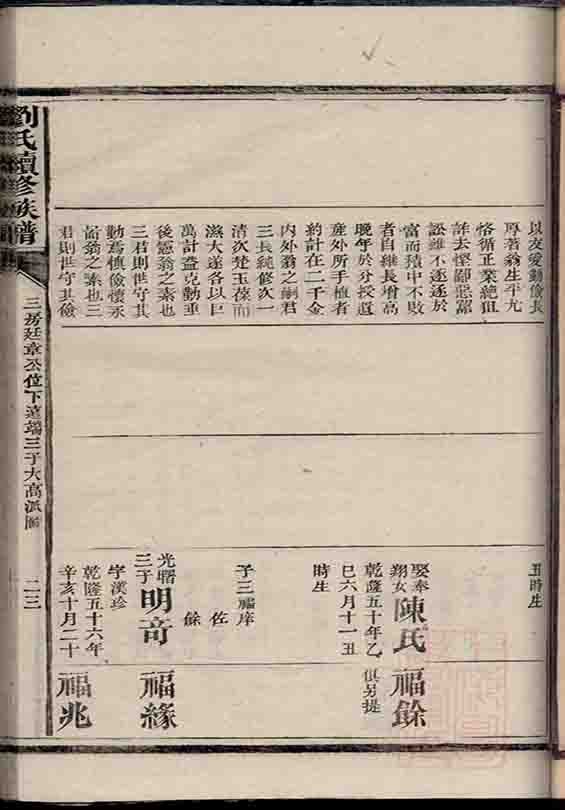 以友愛勤儉長
厚著翁生平尤
恪循正業絶狙
詐去慳鄙惡囂
訟雖不逐逐於
富而積中不敗
者自雖長增高
晚年於分授遺
產外所手植者
約計在二千金
内外翁之嗣君
三長純修次一
清次梵玉葆而
滋大遂各以巨
萬計蓋克勤垂
後慝翁之素也
三君則世守其
勤焉慎儉懷永
啚翁之素也三
君則世守其儉
丑時生
娶奉
翔女
陳氏
乾隆五十年乙
巳六月十一丑
時生
子三福庠
佐
餘
光曙
三子
明奇
字漢珍
乾隆五十六年
辛亥十月二十
福餘
俱另提
福緣
福兆
劉氏續修族譜
三房廷章公位下達端三子大高派
二三